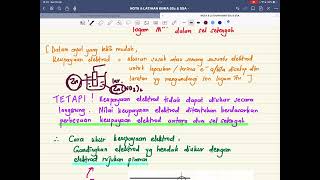 NOTA & LATIHAN KIMIA SOLS & SOA
logam Mⁿ⁺ dalam sel setengah
[ Dalam ayat yang lebih mudah,
Keupayaan elektrod = ukuran sesuatu elektrod
untuk lepaskan / terima e⁻ apabila dicelup dlm
larutan yg mengandungi ion logam itu ]
Zn
lar.
Zn(NO₃)₂
TETAPI ! Keupayaan elektrod tidak dapat diukur secara
langsung. Nilai keupayaan elektrod ditentukan berdasarkan
perbezaan keupayaan elektrod antara dua sel setengah
∴ Cara ukur keupayaan elektrod :
Gandingkan elektrod yg hendak diukur dengan
elektrod rujukan piawai